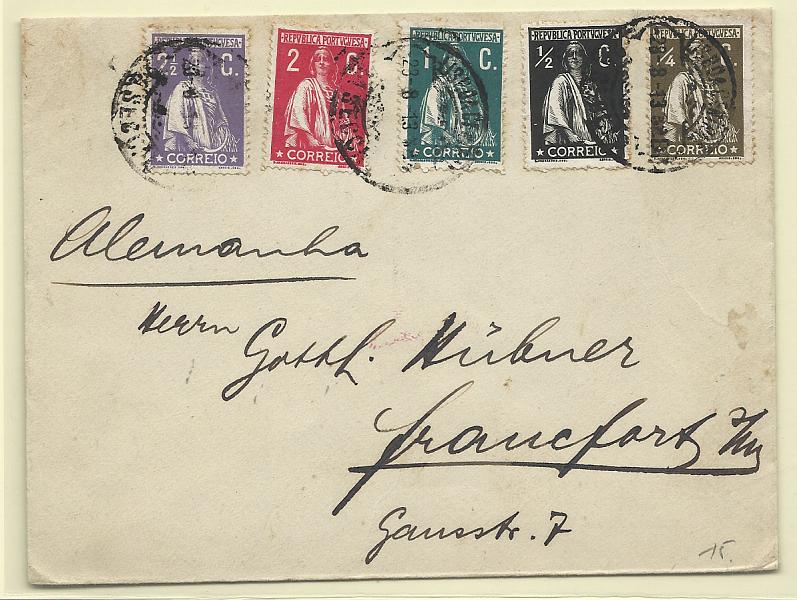 REPVBLICA PORTVGVESA
2½ C.
CORREIO
REPVBLICA PORTVGVESA
2 C.
CORREIO
REPVBLICA PORTVGVESA
1 C.
CORREIO
REPVBLICA PORTVGVESA
½ C.
CORREIO
REPVBLICA PORTVGVESA
¼ C.
CORREIO
23-8-13
Alemanha
Herrn
Gotth. Hübner
Francfort
Gausstr. 7
15.